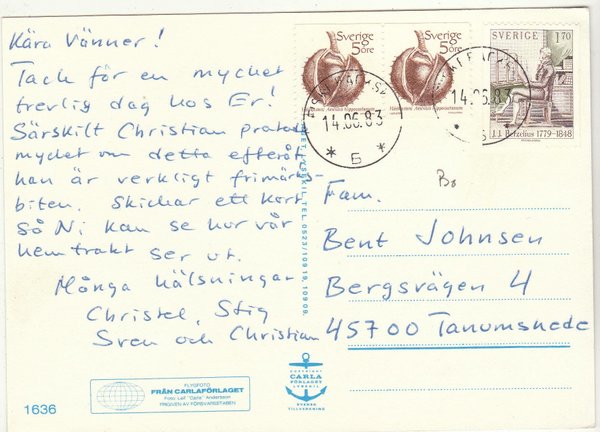 Kära Vänner!
Tack för en mycket
trevlig dag hos Er!
Särskilt Christian pratade
mycket om detta efteråt
han är verkligt frimärks-
biten. Skickar ett kort
så Ni kan se hur vår
hemtrakt ser ut.
Många hälsningar
Christel, Stig
Sven och Christian
FLYGFOTO
FRÅN CARLAFÖRLAGET
Foto: Leif "Carla" Andersson
FRIGIVEN AV FÖRSVARSSTABEN
1636
LYSEKIL, TEL. 0523/10919, 10909.
COPYRIGHT
CARLA
FÖRLAGET
LYSEKIL
SVENSK
TILLVERKNING
Sverige
5 öre
Hästkastanj Aesculus hippocastanum
Sverige
5 öre
Hästkastanj Aesculus hippocastanum
SVERIGE 1.70
J.J. Berzelius 1779-1848
14.06.83
6
14.06.83
Bo
Fam.
Bent Johnsen
Bergsvägen 4
45700 Tanumshede